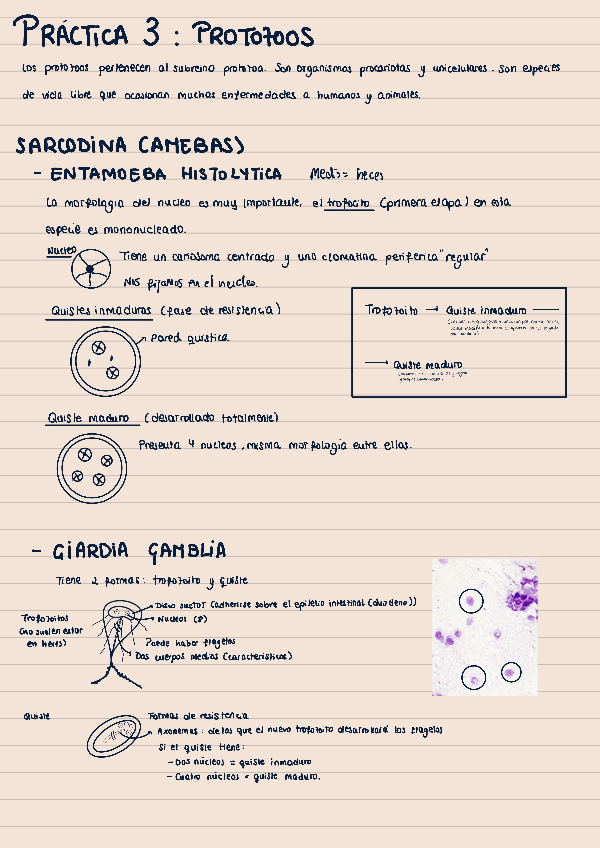 PRÁCTICA 3 : PROTOZOOS
Los protozoos pertenecen al subreino protozoa. Son organismos procariotas y unicelulares. Son especies
de vida libre que ocasionan muchas enfermedades a humanos y animales.
SARCODINA (AMEBAS)
- ENTAMOEBA HISTOLYTICA Medio= heces
La morfología del nucleo es muy importante, el trofocito (primera etapa) en esta
especie es mononucleado.
Núcleo
Tiene un cariosoma centrado y una cromatina periferica "regular"
Nos fijamos en el nucleo.
Quistes inmaduros (fase de resistencia)
Pared quistica
Trofozoito → Quiste inmaduro
→ Quiste maduro
Quiste maduro (desarrollado totalmente)
Presenta 4 nucleos, misma morfologia entre ellos.
- GIARDIA GAMBLIA
Tiene 2 formas: trofozoito y quiste
Trofozoitos
(no suelen estar
en heces)
Disco suctor (adherirse sobre el epitelio intestinal (duodeno))
Nucleos (2)
Puede haber flagelos
Dos cuerpos medios (característicos)
Quiste
Formas de resistencia
Axonemas: de los que el nuevo trofozoito desarrollará los flagelos
Si el quiste tiene:
- Dos núcleos = quiste inmaduro
- Cuatro núcleos = quiste maduro.